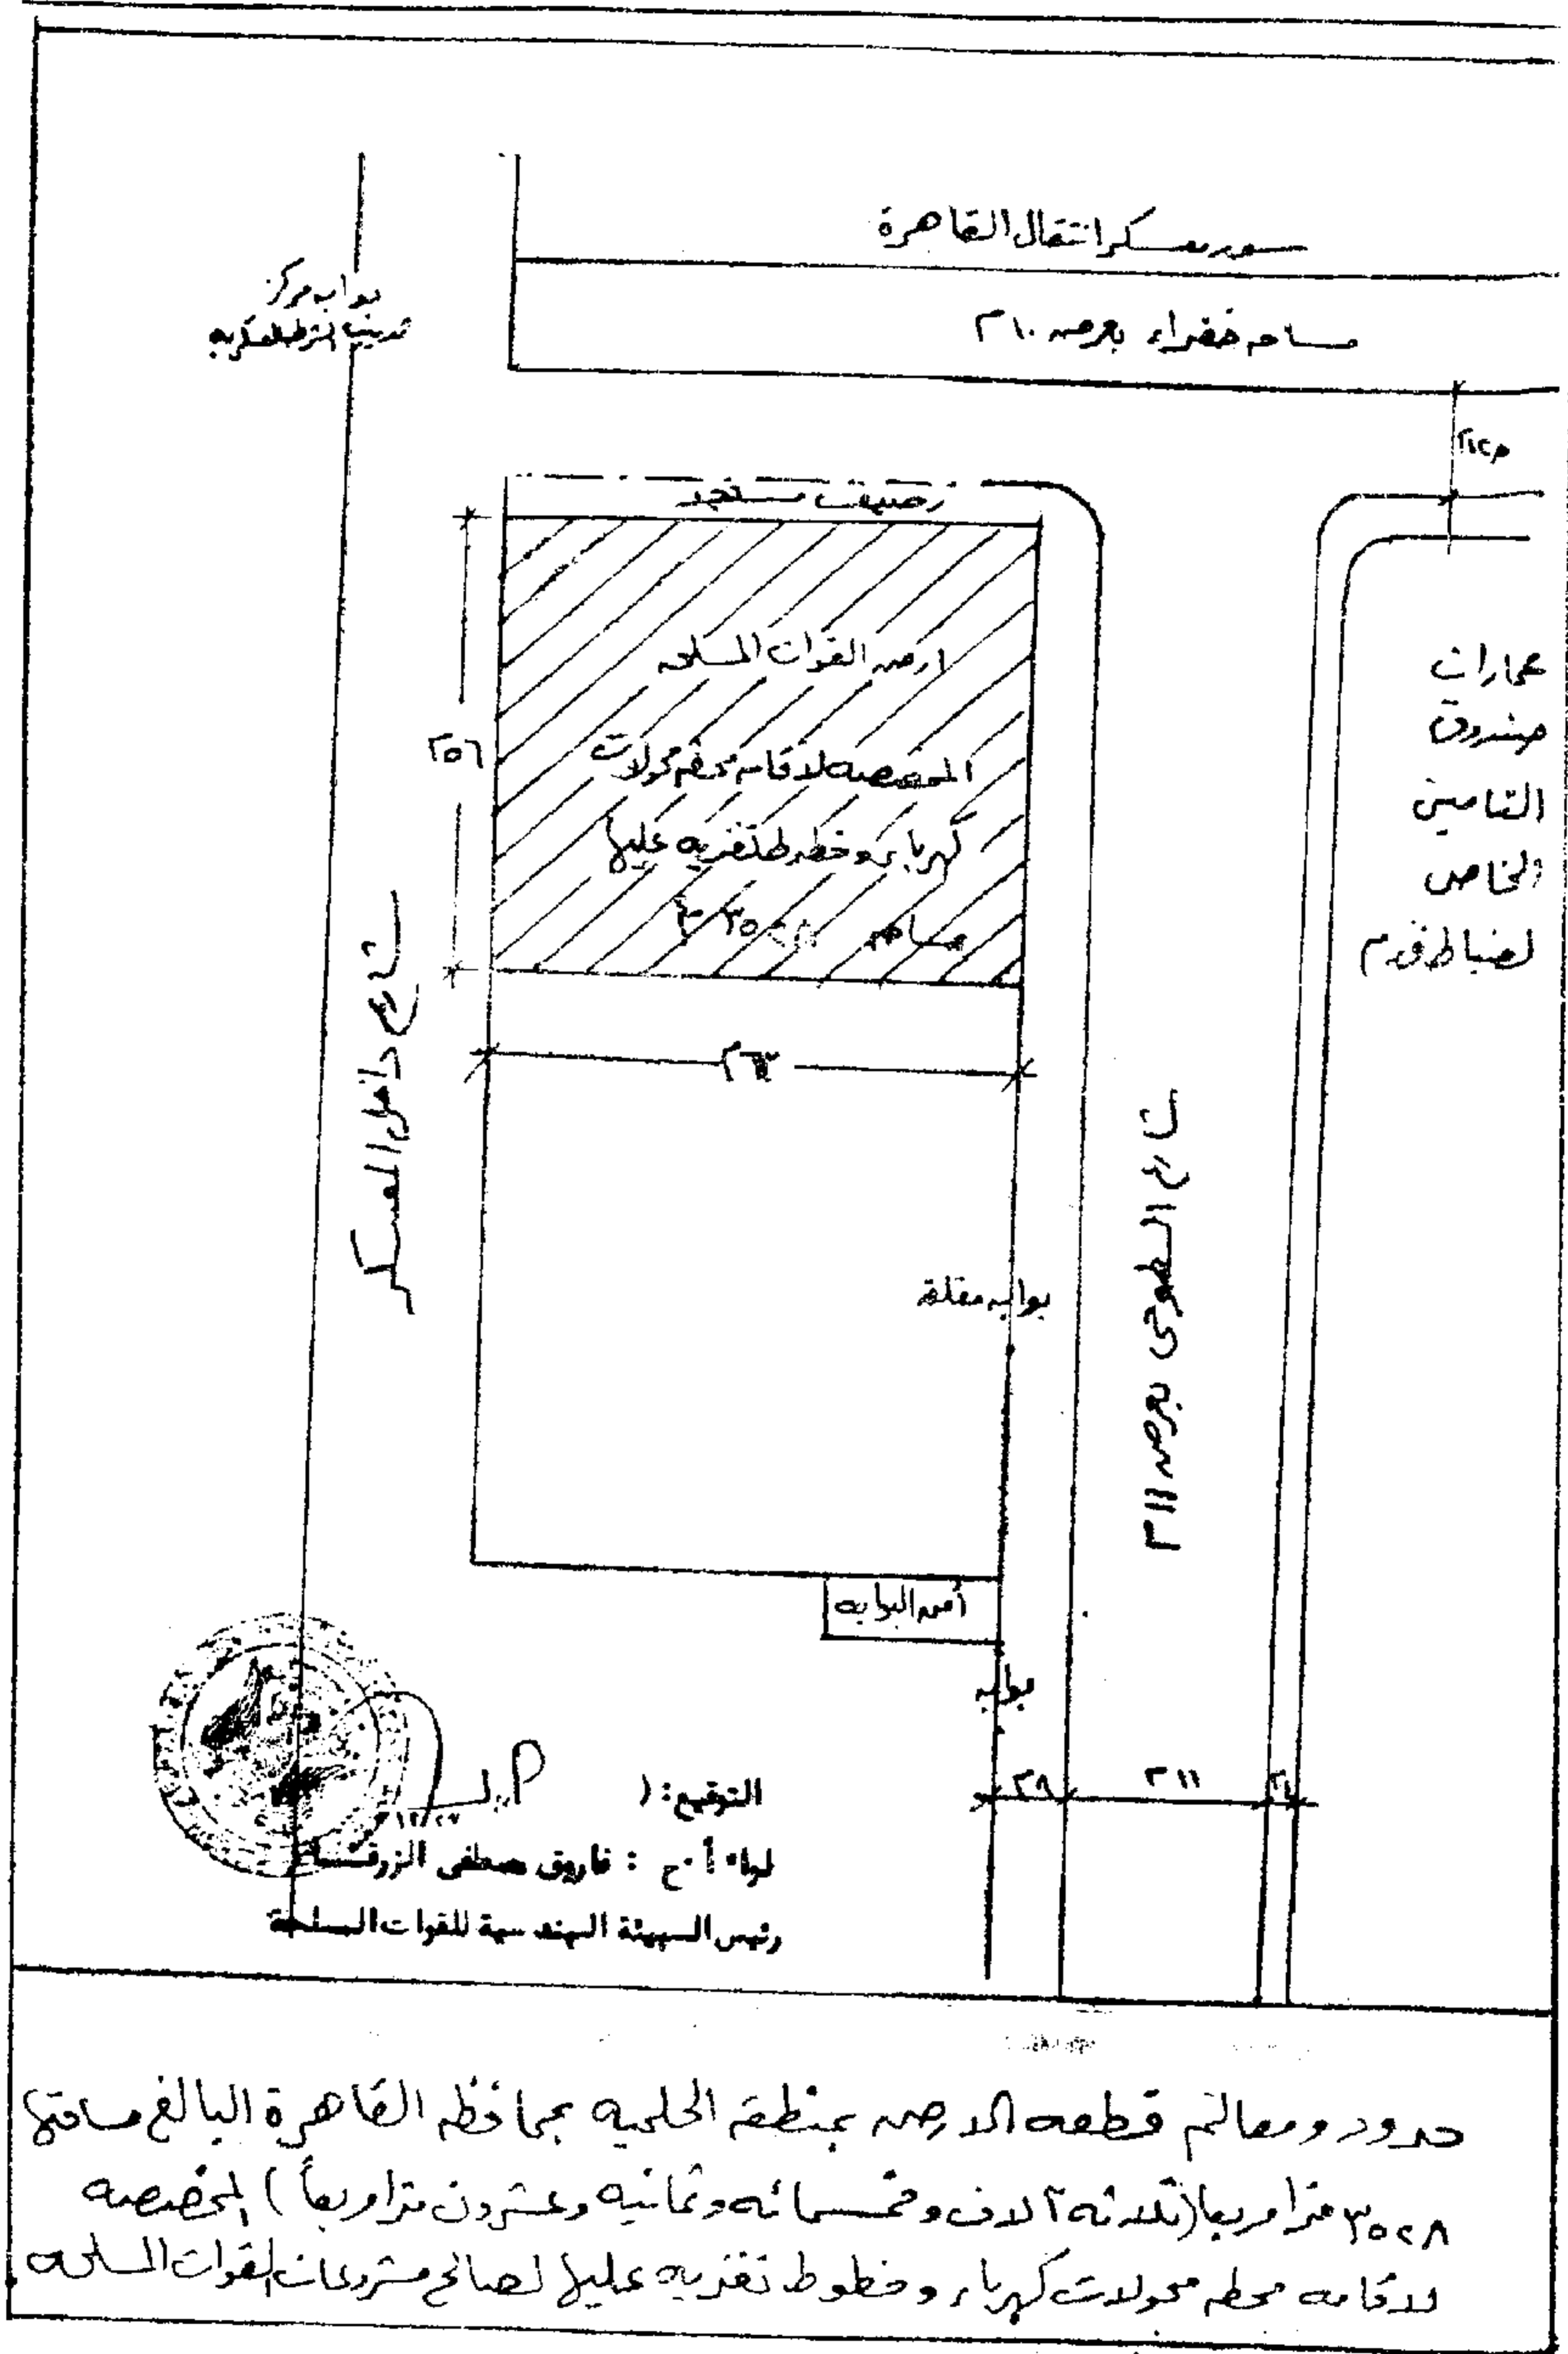 سور معسكر انتقال القاهرة
مساحه خضراء بعرض ١٠م
بوابه مركز
تدريب الشرطه العسكريه
١٢م
رصيف مستجد
ارض القوات المسلحه
المخصصه لاقامه محطه محولات
كهرباء وخطوط تغذيه عليها
مساحه ٣٥٢٨ م٢
٥٦م
٦٣م
عمارات
صندوق
التامين
الخاص
لضباط ق.م
شارع داخل المعسكر
شارع الطوجى بعرض ١١م
بوابه مقفله
أمن البوابه
بوابه
٨م
١١م
التوقيع: (
لواء أ.ح : فاروق مصطفى
رئيس الهيئة الهندسية للقوات المسلحة
حدود ومعالم قطعه الارض بمنطقه الحلميه بمحافظه القاهرة البالغ مساحتها
٣٥٢٨ مترا مربعا (ثلاثه آلاف وخمسمائه وثمانيه وعشرون مترا مربعاً) المخصصه
لاقامه محطه محولات كهرباء وخطوط تغذيه عليها لصالح مشروعات القوات المسلحه